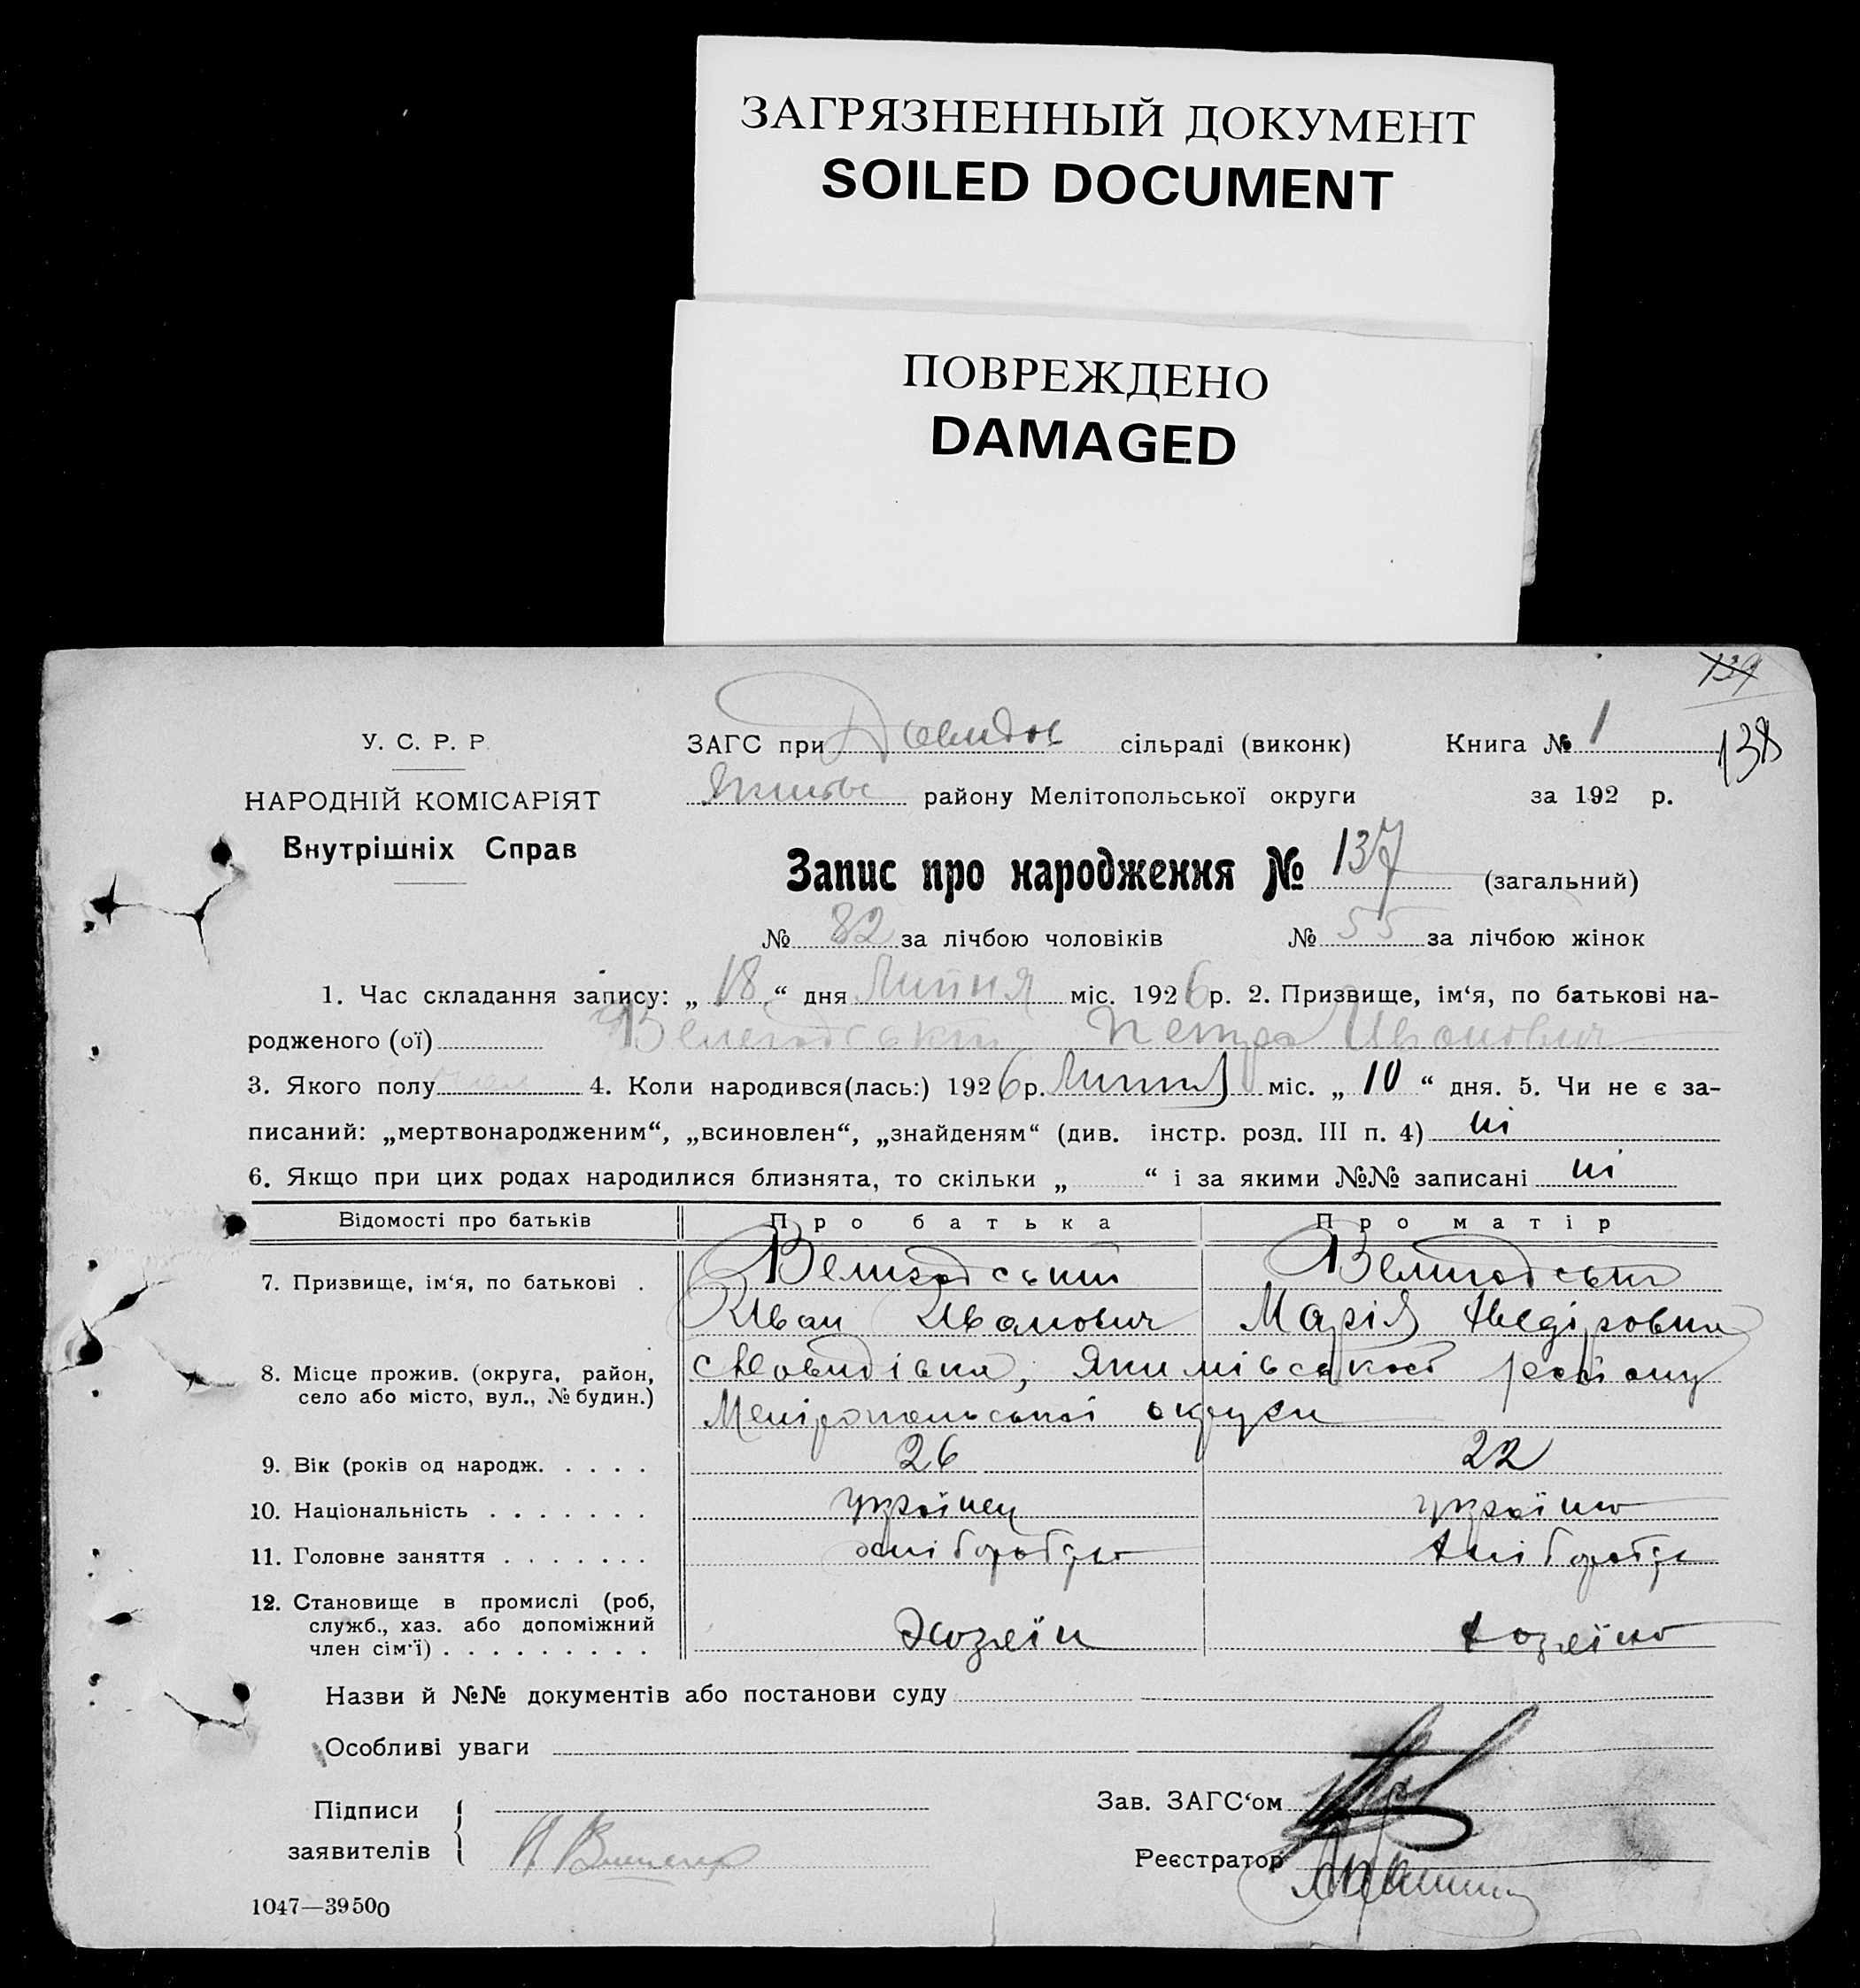 ЗАГРЯЗНЕННЫЙ ДОКУМЕНТ
SOILED DOCUMENT
ПОВРЕЖДЕНО
DAMAGED
139
У. С. Р. Р.
НАРОДНІЙ КОМІСАРІЯТ
Внутрішніх Справ
ЗАГС при Давидов сільраді (виконк) Книга № 1
138
району Мелітопольської округи за 192 р.
Запис про народження № 137 (загальний)
№ 82 за лічбою чоловіків № 55 за лічбою жінок
1. Час складання запису: „ 18 “ дня Липня міс. 1926 р. 2. Призвище, ім‘я, по батькові на-
родженого (ої) Велегодський Петро Иванович
3. Якого полу 4. Коли народився(лась:) 1926 р. Липня міс. „ 10 “ дня. 5. Чи не є за-
писаний: „мертвонародженим“, „всиновлен“, „знайденям“ (див. інстр. розд. III п. 4) ні
6. Якщо при цих родах народилися близнята, то скільки „ “ і за якими №№ записані ні
Відомості про батьків Про батька Про матір
7. Призвище, ім‘я, по батькові . Велигодський Велигодська
Иван Иванович Марія
8. Місце прожив. (округа, район, село або місто, вул., № будин.) Якимівської району
округи
9. Вік (років од народж. . . . . 26 22
10. Національність . . . . . . . українец українка
11. Головне заняття . . . . . . . хліборобство
12. Становище в промислі (роб, служб., хаз. або допоміжний член сім‘ї) . . . . . . . . . Хозяїн хозяїка
Назви й №№ документів або постанови суду
Особливі уваги
Підписи
заявителів
Зав. ЗАГС‘ом
Реєстратор
1047—39500